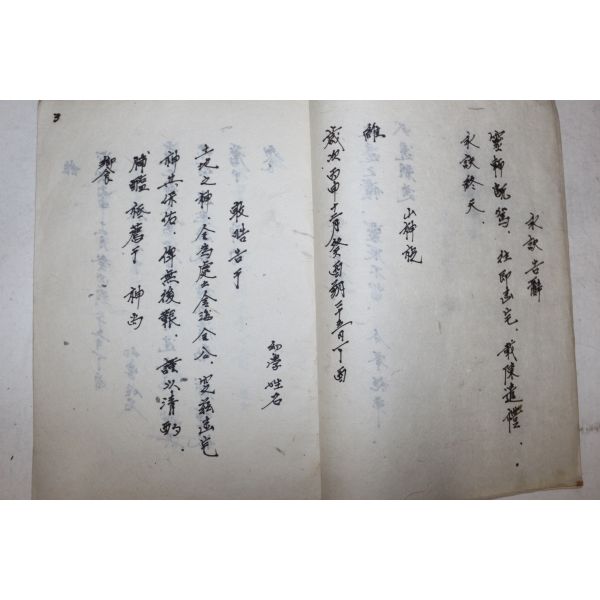 永訣告辭
靈輀既駕. 往即幽宅. 載陳遣禮.
永訣終天.
山神祝
維
歲次丙申十二月癸酉朔二十五日丁酉
幼學姓名
敢昭告于
土地之神. 今為處士金海金公. 窆茲幽宅
神其保佑. 俾無後艱. 謹以清酌
脯醢 祗薦于 神 尚
饗
3